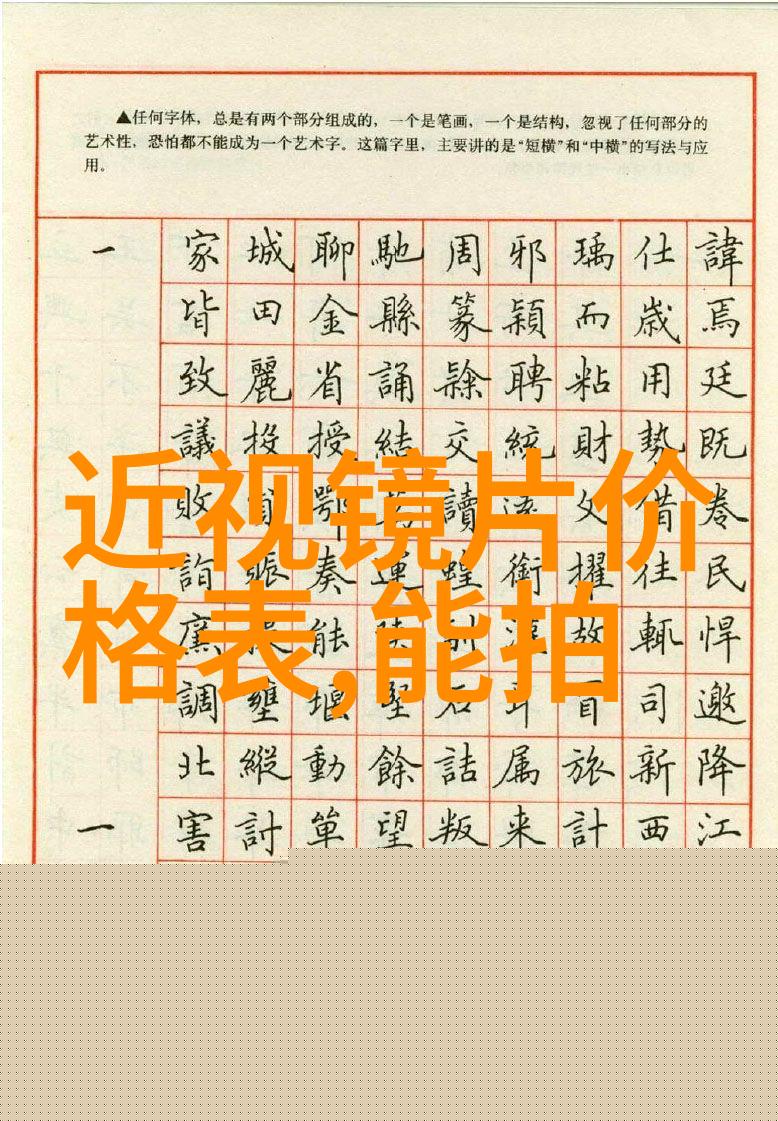 ▲任何字体，总是有两个部分组成的，一个是笔画，一个是结构，忽视了任何部分的
艺术性，恐怕都不能成为一个艺术字。这篇字里，主要讲的是“短横”和“中横”的写法与应
用。
一 家 城 聊 馳 周 邪 瑀 仕 諱
皆 田 金 縣 篆 穎 而 歲 焉
致 麗 省 誦 聘 粘 用 廷
議 投 授 結 交 統 財 勢 既
敗 鄂 讀 父 借
近视镜片价
詣 賑 奏 連 蝗 銜 擢 民
格表,能拍
能 故 輒 悍
調 壅 堰 石 司 邀
北 縱 動 餘 詰 属 旅 新 降
一 害 討 單 望 叛 来 計 西 江